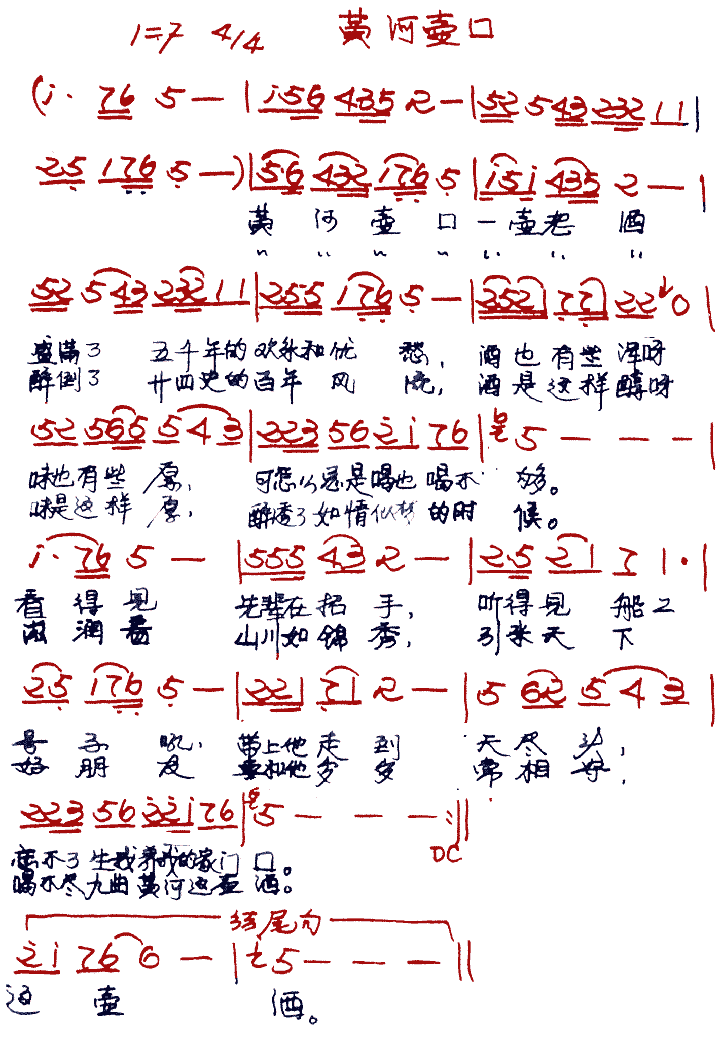 1=7 4/4 黄河壶口
(i· 76 5 — | i56 435 2 — | 52 543 232 11 |
25 176 5 — ) | 5·6 432 176 5 | i5i 435 2 — |
黄河壶口一壶老酒
〃 〃 〃 〃 〃 〃 〃
52 543 232 11 | 255 176 5 — | 2521 771 22 0 |
盛满了 五千年的欢乐和忧愁，酒也有些浑呀
醉倒了 廿四史的百年风流，酒是这样醇呀
52 565 543 | 223 56 2i 76 | 5 — — — |
味也有些厚，可怎么总是喝也喝不够。
味是这样厚，醉透了如情似梦的时候。
i· 76 5 — | 555 43 2 — | 2·5 21 7 1· |
看得见 先辈在招手，听得见 船工
滋润着 山川如锦秀，引来天下
25 176 5 — | 221 71 2 — | 5 62 543 |
号子吼，带上他走到 天尽头，
好朋友 和他岁岁 常相好，
223 56 22i76 | 5 — — — :||
DC
恋不了生我养我的家门口。
喝不尽九曲黄河这壶酒。
结尾句
2i 76 6 — | 5 — — — ||
这壶酒。